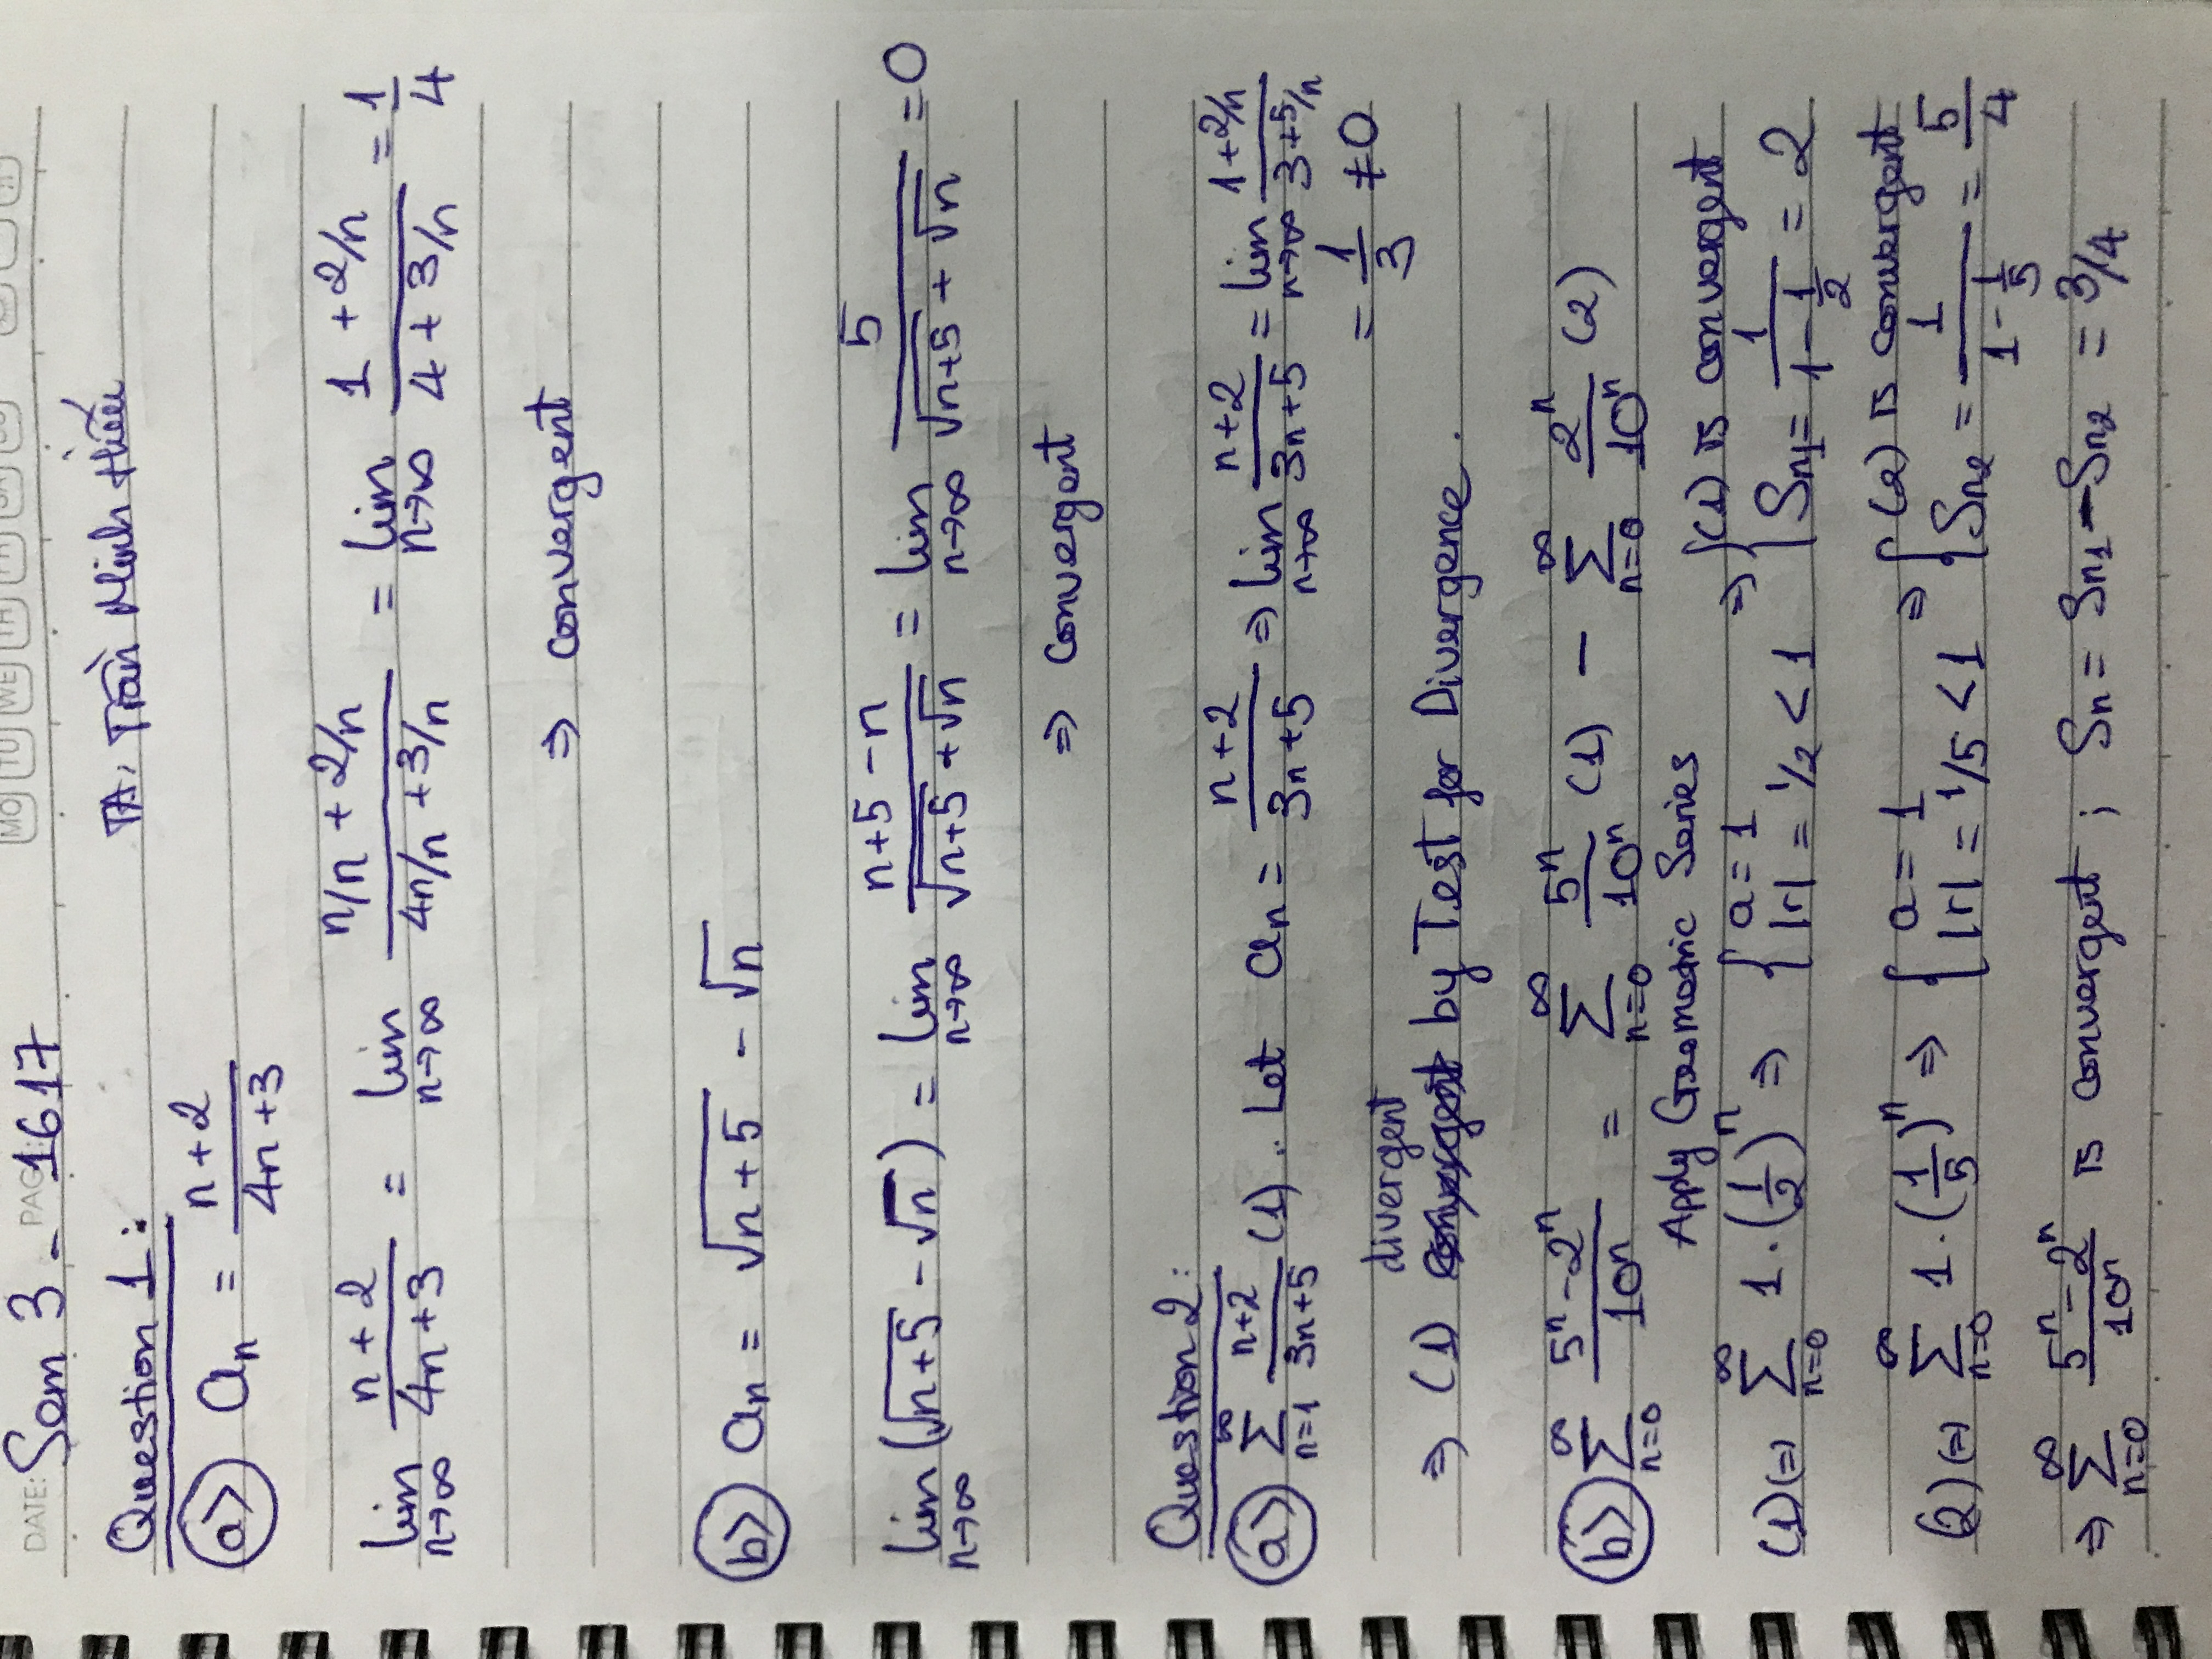 DATE: Sem 3 - PAGE: 1617
MO TU WE TH FR SA SU
Question 1: TA: Trần Minh Hiếu
a> aₙ = (n+2)/(4n+3)
lim n→∞ (n+2)/(4n+3) = lim n→∞ (n/n + 2/n)/(4n/n + 3/n) = lim n→∞ (1 + 2/n)/(4 + 3/n) = 1/4
⇒ convergent
b> aₙ = √(n+5) - √n
lim n→∞ (√(n+5) - √n) = lim n→∞ (n+5-n)/(√(n+5) + √n) = lim n→∞ 5/(√(n+5) + √n) = 0
⇒ convergent
Question 2:
a> ∑ n=1 ∞ (n+2)/(3n+5) (1). Let aₙ = (n+2)/(3n+5) ⇒ lim n→∞ (n+2)/(3n+5) = lim n→∞ (1+2/n)/(3+5/n)
= 1/3 ≠ 0
⇒ (1) divergent by Test for Divergence.
b> ∑ n=0 ∞ (5ⁿ - 2ⁿ)/10ⁿ = ∑ n=0 ∞ 5ⁿ/10ⁿ (1) - ∑ n=0 ∞ 2ⁿ/10ⁿ (2)
Apply Geometric Series
(1) (=) ∑ n=0 ∞ 1.(1/2)ⁿ ⇒ { a = 1 |r| = 1/2 < 1 ⇒ { (1) is convergent Sₙ₁ = 1/(1 - 1/2) = 2
(2) (=) ∑ n=0 ∞ 1.(1/5)ⁿ ⇒ { a = 1 |r| = 1/5 < 1 ⇒ { (2) is convergent Sₙ₂ = 1/(1 - 1/5) = 5/4
⇒ ∑ n=0 ∞ (5ⁿ - 2ⁿ)/10ⁿ is convergent ; Sₙ = Sₙ₁ - Sₙ₂ = 3/4